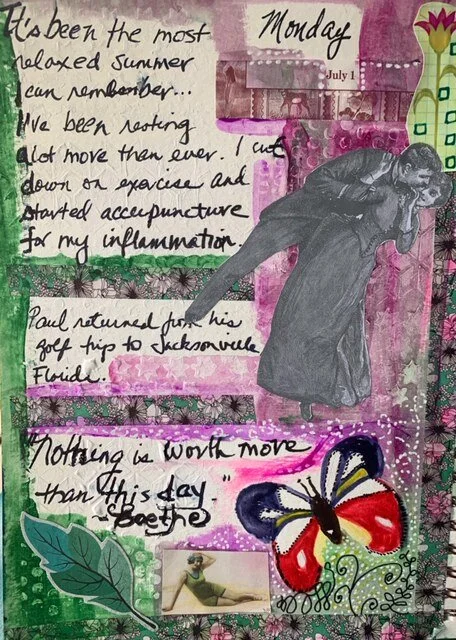 It's been the most
relaxed summer
I can remember...
I've been resting
alot more than ever. I cut
down on exercise and
started accupuncture
for my inflammation.
Monday
July 1
Paul returned from his
golf trip to Jacksonville
Florida.
"Nothing is worth more
than this day."
~Goethe